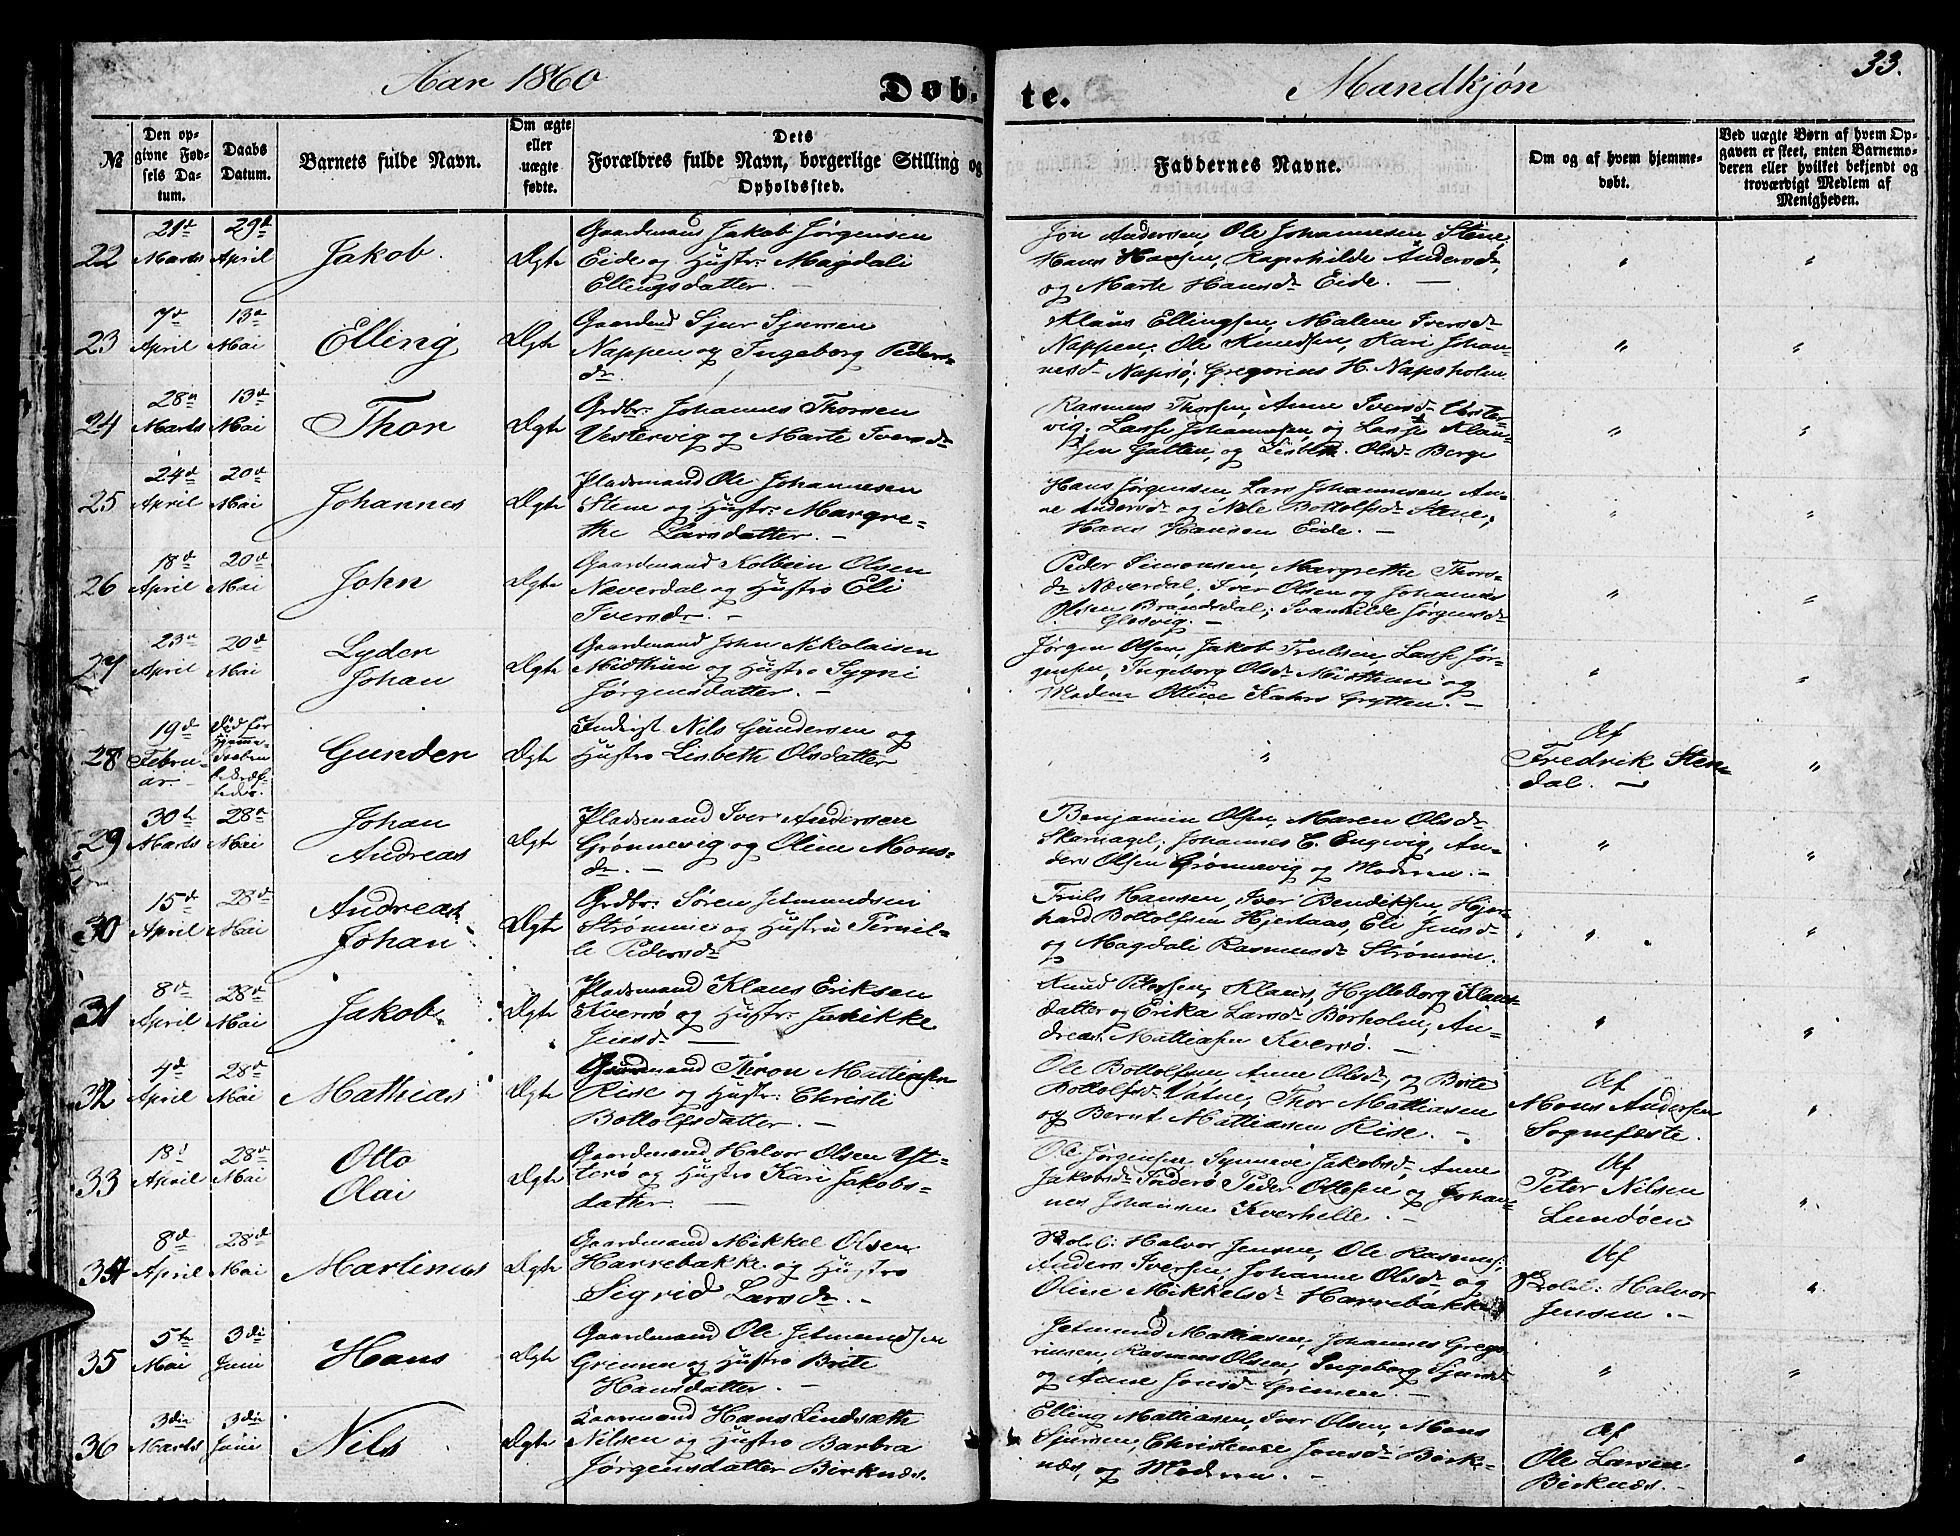 Aar 1860
Døb-
te.
Mandkjøn
33.
№
Den op-
givne Fød-
sels Da-
tum.
Daabs
Datum.
Barnets fulde Navn.
Om ægte
eller
uægte
fødte.
Dets
Forældres fulde Navn, borgerlige Stilling og
Opholdssted.
Faddernes Navne.
Om og af hvem hjemme-
døbt.
Ved uægte Børn af hvem Op-
gaven er skeet, enten Barnemo-
deren eller hvilket bekjendt og
troværdigt Medlem af
Menigheden.
22
21de
Marts
29de
April
Jakob.
Ægte
Gaardmand Jakob Jørgensen
Eide og Hustr: Magdali
Ellingsdatter. —
Jon Andersen, Ole Johannesen Stene,
Hans Hansen, Ragnhilde Andersd.,
og Marte Hansdr Eide. —
"
"
23
7de
April
13de
Mai
Elling
Ægte
Gaardmd Sjur Sjursen
Nappen og Ingeborg Peders-
dr.
Klaus Ellingsen, Malene Iversdr
Nappen, Ole Knudsen, Kari Johan-
nesdr Napsø, Gregorius H. Napsholm
"
"
24
28de
Marts
13de
Mai
Thor
Ægte
Grdbr: Johannes Thorsen
Vestervig og Marte Iversdr
Rasmus Thorsen, Anne Iversdr Vester-
vig. Lasse Johannesen og Lasse Klau-
sen Gatten, og Lisbeth Olsdr Berge
"
"
25
24de
April
20de
Mai
Johannes
Ægte
Pladsmand Ole Johannesen
Stene og Hustr: Margre-
the Larsdatter. —
Hans Jørgensen, Lars Johannesen, An-
ne Andersdr og Nele Bottolfsdr Stene,
Hans Hansen Eide. —
"
"
26
18de
April
20de
Mai
John
Ægte
Gaardmand Kolbein Olsen
Næverdal og Hustro Eli
Iversdr. —
Peder Simonsen, Margrethe Thors-
dr Næverdal, Iver Olsen og Johannes
Olsen Brandsdal; Svanhilde Jørgensdr
Glosvig. —
"
"
27
23de
April
20de
Mai
Lyder
Johan
Ægte
Gaardmand John Nikolaisen
Midthien og Hustro Sygni
Jørgensdatter. —
Jørgen Olsen, Jakob Trulsen, Lasse Jør-
gensen, Ingeborg Olsdr Midthun og
Madame Ottine Kahrs Grytten. —
"
"
28
19de
Febru-
ar.
Død før
Hjemme-
daaben
Gunder
Ægte
Inderst Nils Gundersen og
Hustro Lisbeth Olsdatter
"
Af
Fredrik Sten-
dal. —
"
29
30te
Marts
28de
Mai
Johan
Andreas
Ægte
Pladsmand Iver Andersen
Grønnevig og Oline Mons-
dr. —
Benjamin Olsen, Maren Olsdr
Skarnagel; Johannes C. Engevig, An-
ders Olsen Grønnevig og Moderen. —
"
"
30
15de
April
28de
Mai
Andreas
Johan
Ægte
Grdbr: Søren Jetmundsen
Strømme og Hustru Pernil-
le Pedersdr
Truls Hansen, Iver Bendiksen, Hjer-
Bottolfsen Hjertaas, Eli Jensdr
og Magdali Rasmusdr Strømme.
"
"
31
8de
April
28de
Mai
Jakob.
Ægte
Pladsmand Klaus Eriksen
Kversø og Hustr: Jasikke
Jensdr —
Knud Petersen, Klaus, Hylleborg Klaus-
datter og Erika Larsdr Borholm, An-
dreas Mattiasen Kversø. —
"
"
32
4de
April
28de
Mai
Mathias
Ægte
Gaardmand Theron Mattiasen
Rise og Hustr: Christi
Bottolfsdatter. —
Ole Bottolfsen, Anne Olsdr, og Brite
Bottolfsdr Vatne, Thor Mattiasen
og Bernt Mattiasen Rise. —
Af
Mons Andersen
Sognefæste.
"
33
18de
April
28de
Mai
Otto
Olai
Ægte
Gaardmand Halvor Olsen Yt-
terø og Hustro Kari Jakobs-
datter. —
Ole Jørgensen, Synneve Jakobsdr, Anne
Jakobsdr Inderø, Peder Ottesen og Johan-
nes Johansen Kverhelle. —
Af
Peter Nilsen
Lundøen
"
34
8de
April
28de
Mai
Martinus
Ægte
Gaardmand Mikkel Olsen
Harrebakke og Hustro
Sigrid Larsdr. —
Halvor Jensen, Ole Rasmus:
Anders Iversen, Johanne Olsdr og
Oline Mikkelsdr Harrebakke
Af
Halvor
Jensen. —
"
35
5te
Mai
3die
Juni
Hans
Ægte
Gaardmand Ole Jetmundsen
Grimen og Hustro Brite
Hansdatter. —
Jetmund Mattiasen, Johannes Grego-
riussen, Rasmus Olsen, Ingeborg Sjursdr
og Anne Jonsdr Grimen. —
"
"
36
3die
Marts
3die
Juni
Nils
Ægte
Gaardmand Hans Lindsæth
Nilsen og Hustro Barbra
Jørgensdatter Birknæs.
Elling Mattiasen, Iver Olsen, Mons
Sjursen, Christense Jonsdr Birk-
næs, og Moderen. —
Af
Ole Larsen
Birknæs. —
"